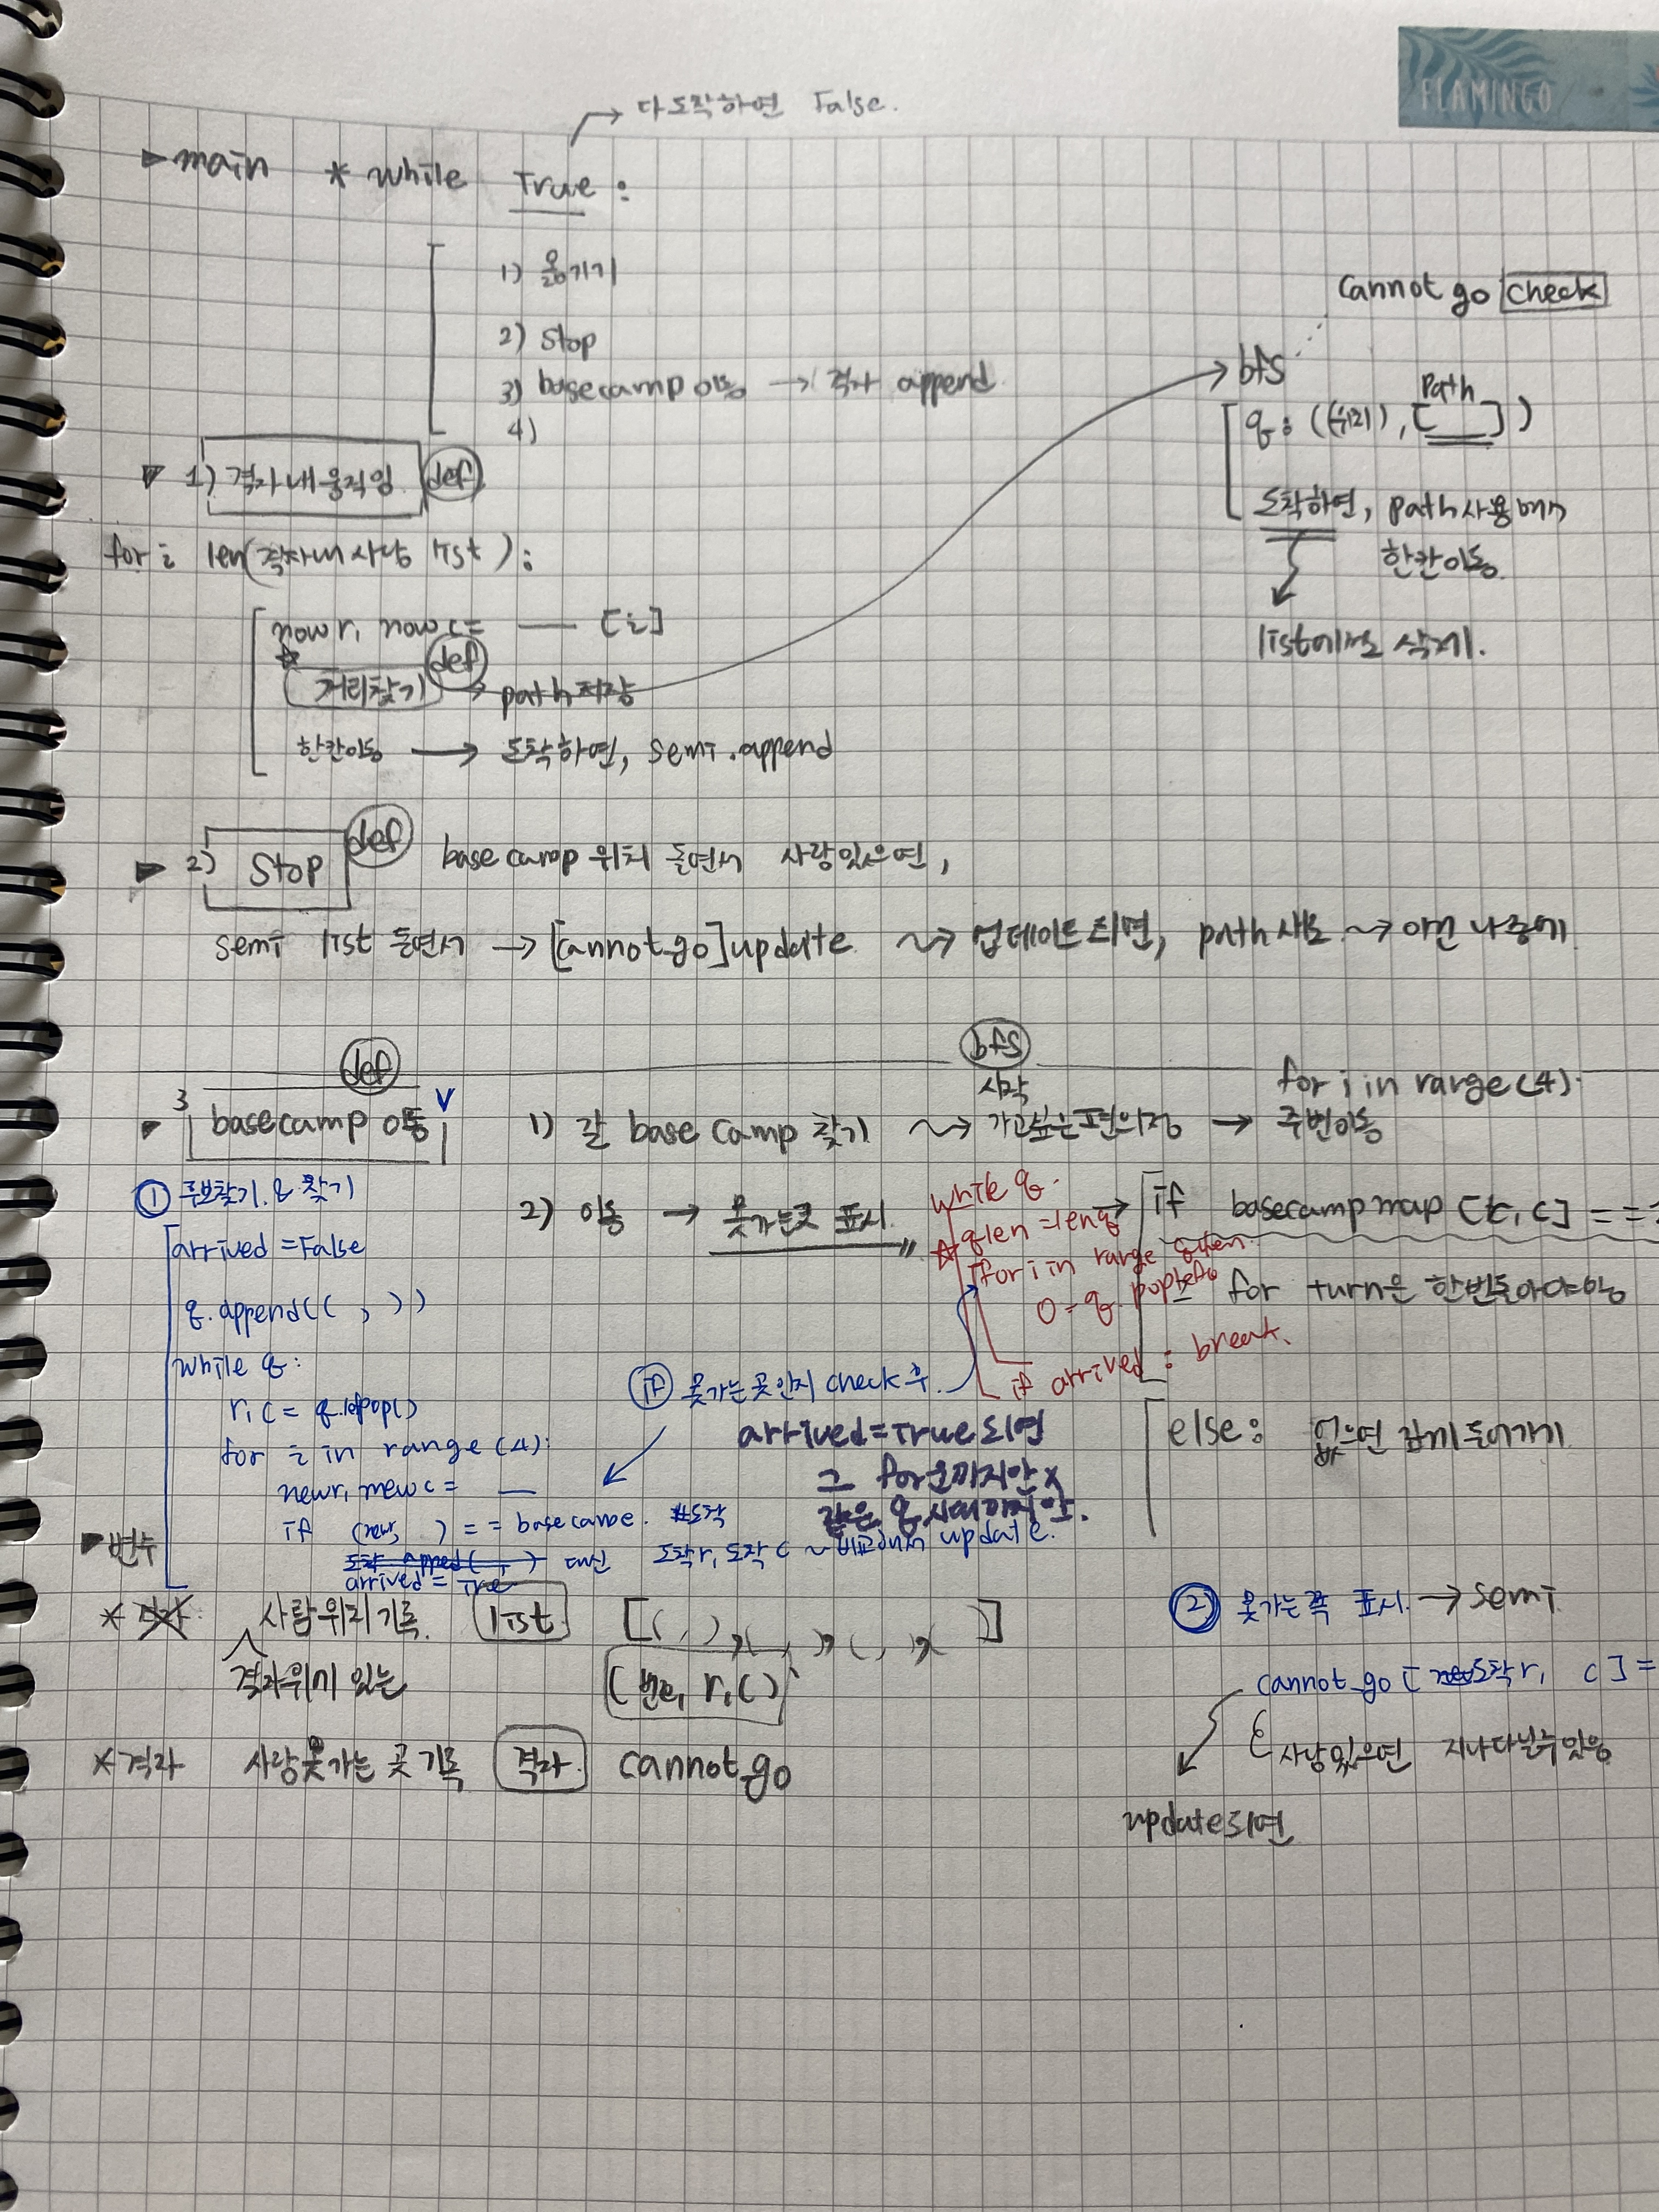 FLAMINGO
→ 다 도착하면 False.
▶ main * while True :
1) 옮기기
2) Stop
3) basecamp 이동 → 격자 append
4)
cannot go check
bfs
q : ((위치), [ ])
path
도착하면, path 사용해서
한칸이동.
list에서도 삭제.
▶ 1) 격자 내 움직임 def
for i len(격자내 사람 list) :
now r, now c = — [i]
거리찾기 def → path 저장
한칸이동 → 도착하면, semi.append
▶ 2) Stop def basecamp 위치 돌면서 사람있으면,
semi list 돌면서 → [cannot go] update ⇝ 업데이트 되면, path 새로 ⇝ 이건 나중에
▶ 3 basecamp 이동 def V
1) 갈 base camp 찾기 ⇝ 가고싶은 편의점 → 주변이동
bfs
시작
for i in range (4).
2) 이동 → 못가는곳 표시
while q.
☆ qlen = len q
for i in range qlen.
0 = q. popleft
if arrived : break.
→ if basecamp map [r, c] = =
for turn은 한번돌아야함
else : 없으면 같이 돌아가기
① 후보찾기. & 찾기
arrived = False
q.append(( , ))
while q :
r, c = q.lefpop()
for i in range (4):
newr, newc = —
if (newr, ) = = basecamp. #도착
도착 append( , ) 대신 도착r, 도착 c ~ 비교해서 update.
arrived = True
if 못가는 곳 인지 check 후.
arrived = True 되면
그 for문까지만 x
같은 q 시대까지 만.
▶ 변수
* 격자 사람위치 기록. list. [( , ), ( , ), ( , ), ( ]
격자위에 있는 (번호, r, c)
* 격자 사람못가는 곳 기록 격자. cannot go
② 못가는 쪽 표시. → semi
cannot go [ 도착r, c ] =
사람있으면 지나다닐수있음
update되면